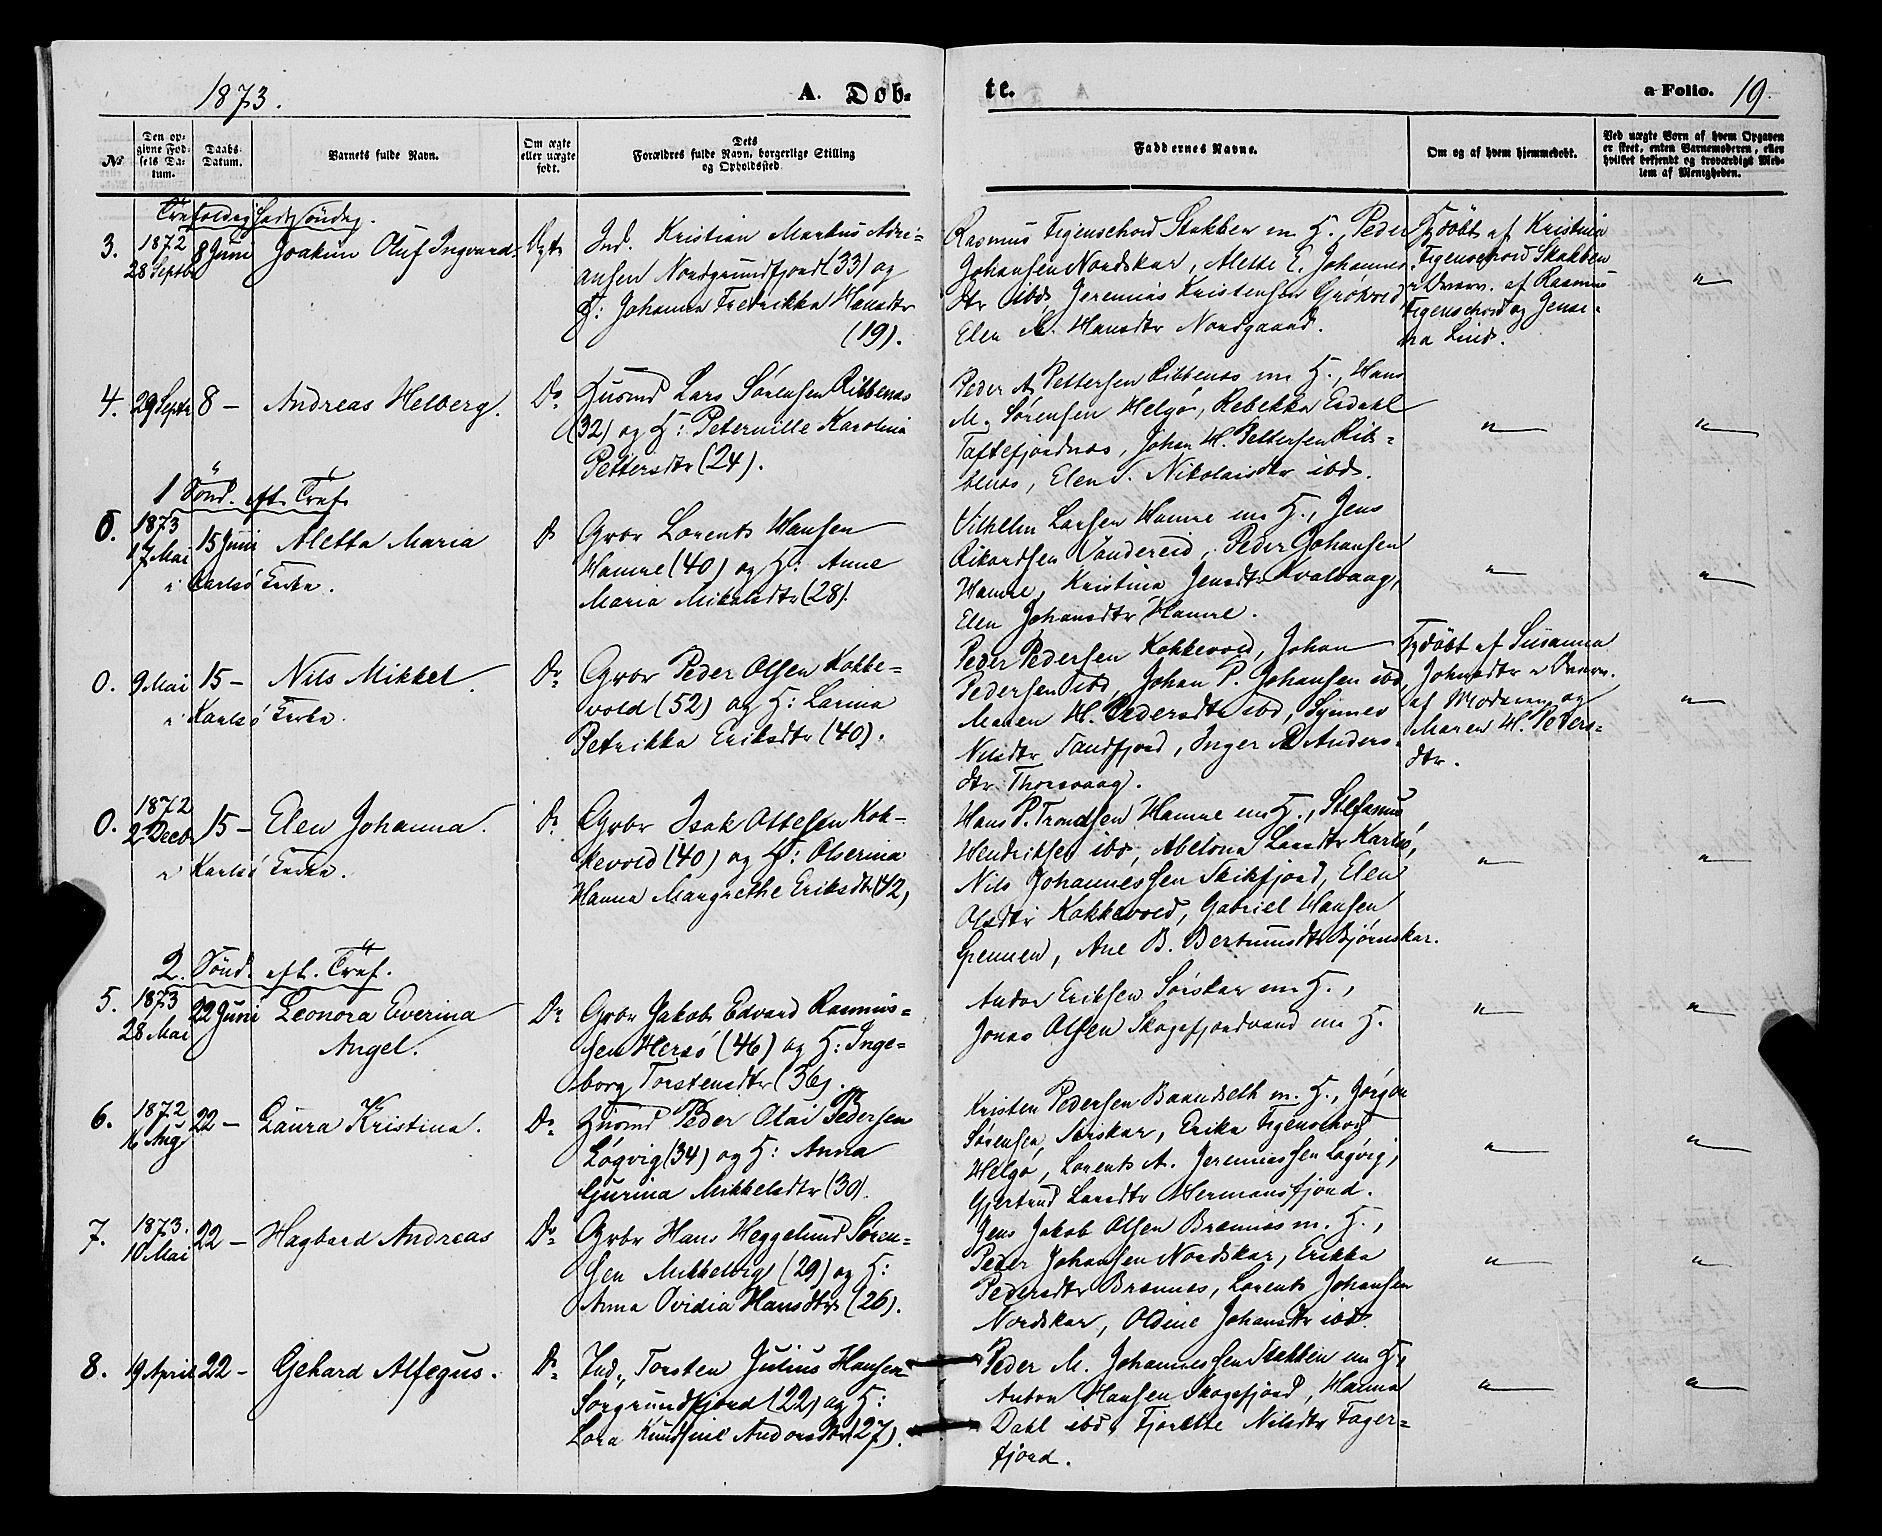 1873.
A. Döb-
te.
a Folio. 19.
No
Den op-
givne Fød-
sels Da-
tum.
Daabs-
Datum.
Barnets fulde Navn.
Om ægte
eller uægte
født.
Dets
Forældres fulde Navn, borgerlige Stilling
og Opholdssted.
Faddernes Navne.
Om og af hvem hjemmedøbt.
Ved uægte Børn af hvem Opgaven
er skeet, enten Barnemoderen, eller
hvilket bekjendt og troværdigt Med-
lem af Menigheden.
3.
1872
28 Septbr
8 Juni
Joakim Oluf Ingvard
Ægt
Ind. Kristian Markus Adri-
ansen Nordgrundfjord (33) og
H: Johanna Fredrikka Hansdtr
(19).
Rasmus Figenschord Stakken m H., Peder
Johansen Nordskar, Alette E. Johannes-
dtr ibd, Jeremias Kristensen Grökvold
Elen M. Hansdtr Nordgaard.
Hjdöbt af Kristina
Figenschord Stakken
i Overv. af Rasmus
Figenschord og Jensi-
na Lind.
"
4.
29 Septr
8 -
Andreas Helberg.
Do
Husmd Lars Sörensen Ribbenes
(32) og H: Peternille Karolina
Pettersdtr (24).
Peder A. Pettersen Ribbenes m H., Hans
M. Sörensen Helgø, Rebekka Esdahl
Toftefjordnes, Johan H. Pettersen Rib-
benes, Elen S. Nikolaisdtr ibd.
"
"
1 Sönd. eft. Tref.
0.
1873
17 Mai
15 Juni
Aletta Maria
i Karlsö Kirke.
D
Grbr Lorents Hansen
Hamre (40) og H: Anne
Maria Mikalsdtr (28).
Vilhelm Larsen Hamre m H., Jens
Rikardsen Vandereid, Peder Johansen
Hamre, Kristina Jensdtr Kvalvaag,
Elen Johansdtr Hamre.
"
"
0.
9 Mai
15 -
Nils Mikkel.
i Karlsö Kirke.
Do
Grbr Peder Olsen Kokke-
vold (52) og H: Larina
Petrikka Eriksdtr (40).
Peder Pedersen Kokkevold, Johan
Pedersen ibd, Johan P. Johansen ibd,
Maren H. Pedersdtr ibd, Synnev
Nilsdtr Sandfjord, Inger M Anders-
dtr Thorsvaag.
Hjdöbt af Susanna
Johnsdtr i Overv.
af Moderen og
Maren H. Peders-
dtr.
"
0.
1872
2 Decbr
15 -
Elen Johanna.
i Karlsö Kirke.
Do
Grbr Isak Ottesen Kok-
kevold (40) og H: Olserina
Hanna Margrethe Eriksdtr (42)
Hans P. Trondsen Hamre m H., Stefanus
Hendriksen ibd, Abelona Larsdtr Karlsö,
Nils Johannessen Skikfjord, Elen
Olsdtr Kokkevold, Gabriel Hansen
Grennen, Ane B. Bertunsdtr Bjørnskar.
"
"
2. Sönd. eft. Tref.
5.
1873
28 Mai
22 Juni
Leonora Everina
Angel.
Do
Grbr Jakob Edvard Rasmus-
sen Hersö (46) og H: Inge-
borg Torstensdtr (36).
Andor Eriksen Sörskar m H.,
Jonas Olsen Skogsfjordvand m H.
"
"
6.
1872
16 Aug
22 -
Laura Kristina.
Do
Husmd Peder Olai Pedersen
Løgvig (34) og H: Anna
Gjurina Mikkelsdtr (30).
Kristen Pedersen Baandseth m. H., Jørgen
Sørensen Sørskar, Erika Figenschord
Helgø, Lorents A. Jeremiassen Løgvig,
Gjertrud Larsdtr Hermansfjord.
"
"
7.
1873.
10 Mai
22 -
Hagbard Andreas
Do
Grbr Hans Heggelund Sören-
sen Mikkelvig (29) og H:
Anna Ovidia Hansdtr (26).
Jens Jakob Olsen Brænnes m. H.,
Peder Johansen Nordskar, Erikka
Pedersdtr Brænnes, Lorents Johansen
Nordskar, Oldine Johansdtr ibd.
"
"
8.
19 April
22 -
Gehard Alfegus.
Do
Ind. Torsten Julius Hansen
Sørgrundfjord (22) og H:
Lora Kundsine Andorsdtr (27).
Peder M. Johannessen Stakken m H.
Anton Hansen Skogsfjord, Hanna
Dahl ibd, Fjorette Nilsdtr Fager-
fjord.
"
"